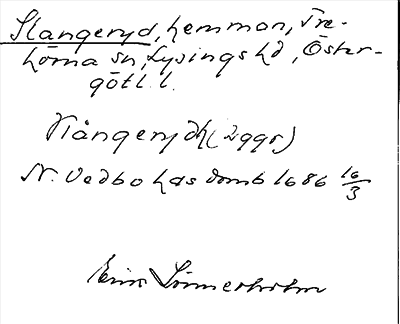 Slangeryd, hemman, Tre-
hörna sn, Lysings hd, Öster-
götl. l.
Slångerydh (2 ggr)
N. Vedbo häs domb 1686 16/3
Erik Linnerholm